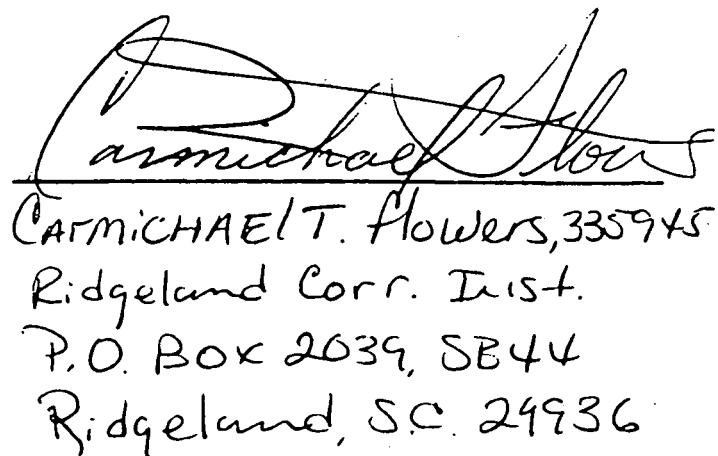 Carmichael Flowers
CArmiCHAEl T. flowers, 335945
Ridgeland Corr. Inst.
P.O. BOX 2039, SB44
Ridgeland, S.C. 29936